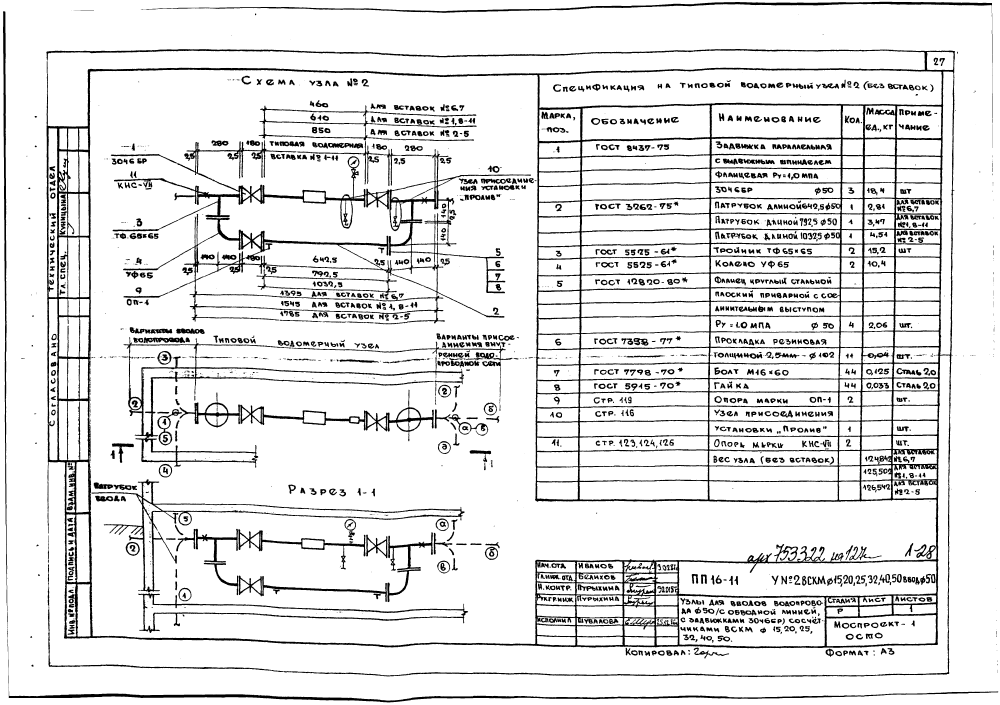 27
Схема узла №2
460 для вставок №6,7
610 для вставок №1,8-11
850 для вставок №2-5
280 180 типовая водомерная 180 280
2,5 2,5 вставка №1-11 2,5 2,5 2,5
1
30ч6БР
11
КНС-VII
3
ТФ.65×65
4
УФ65
9
ОП-1
10
Узел присоедине-
ния установки
„Пролив"
140 2,5
140
5
6
7
8
2
2,5 140 140 2,5 642,5 2,5 140 140 2,5
792,5
1032,5
1395 для вставок №6,7
1545 для вставок №1,8-11
1785 для вставок №2-5
Варианты вводов
водопровода
Типовой водомерный узел
Варианты присое-
динения внут-
ренней водо-
проводной сети
3
2
1
5
4
2
б
а
в
д
1
1
Разрез 1-1
Патрубок
ввода
3
2
1
а
б
в
Спецификация на типовой водомерный узел №2 (без вставок)
Марка, поз. Обозначение Наименование Кол. Масса ед., кг Приме-чание
1 ГОСТ 8437-75 Задвижка параллельная
с выдвижным шпинделем
фланцевая Ру=1,0 МПа
30ч6БР ø50 3 18,4 шт
2 ГОСТ 3262-75* Патрубок длиной 642,5 ø50 1 2,81 для вставок №6,7
Патрубок длиной 792,5 ø50 1 3,47 для вставок №1,8-11
Патрубок длиной 1032,5 ø50 1 4,51 для вставок №2-5
3 ГОСТ 5525-61* Тройник ТФ65×65 2 15,2 шт
4 ГОСТ 5525-61* Колено УФ65 2 10,4
5 ГОСТ 12820-80* Фланец круглый стальной
плоский приварной с сое-
динительным выступом
Ру=1.0 МПа ø 50 4 2,06 шт.
6 ГОСТ 7338-77* Прокладка резиновая
толщиной 2,5мм ø102 11 0,04 шт.
7 ГОСТ 7798-70* Болт М16×60 44 0,125 Сталь 20
8 ГОСТ 5915-70* Гайка 44 0,033 Сталь 20
9 стр. 119 Опора марки ОП-1 2 шт.
10 стр. 116 Узел присоединения
установки „Пролив" 1 шт.
11. стр. 123,124,126 Опоры марки КНС-VII 2 шт.
Вес узла (без вставок) 124,842 для вставок №6,7
125,502 для вставок №1,8-11
126,542 для вставок №2-5
арх 753322 1-28
Нач.отд Иванов
Гл.инж.отд Беликов
Н.контр. Пурыхина
Рук.гр.инж Пурыхина
Исполнил Шувалова
ПП16-11 У №2 ВСКМ ø15,20,25,32,40,50 ввод ø50
Узлы для вводов водопрово-
да ø50 /с обводной линией,
с задвижками 30ч6БР) со счет-
чиками ВСКМ ø 15,20,25,
32,40,50.
Стадия Лист Листов
Р 1
Моспроект-1
ОСТО
Копировал:
Формат: А3
Согласовано
Технический отдел
Гл. спец.
Взам.инв.№
Подпись и дата
Инв.№ подл.